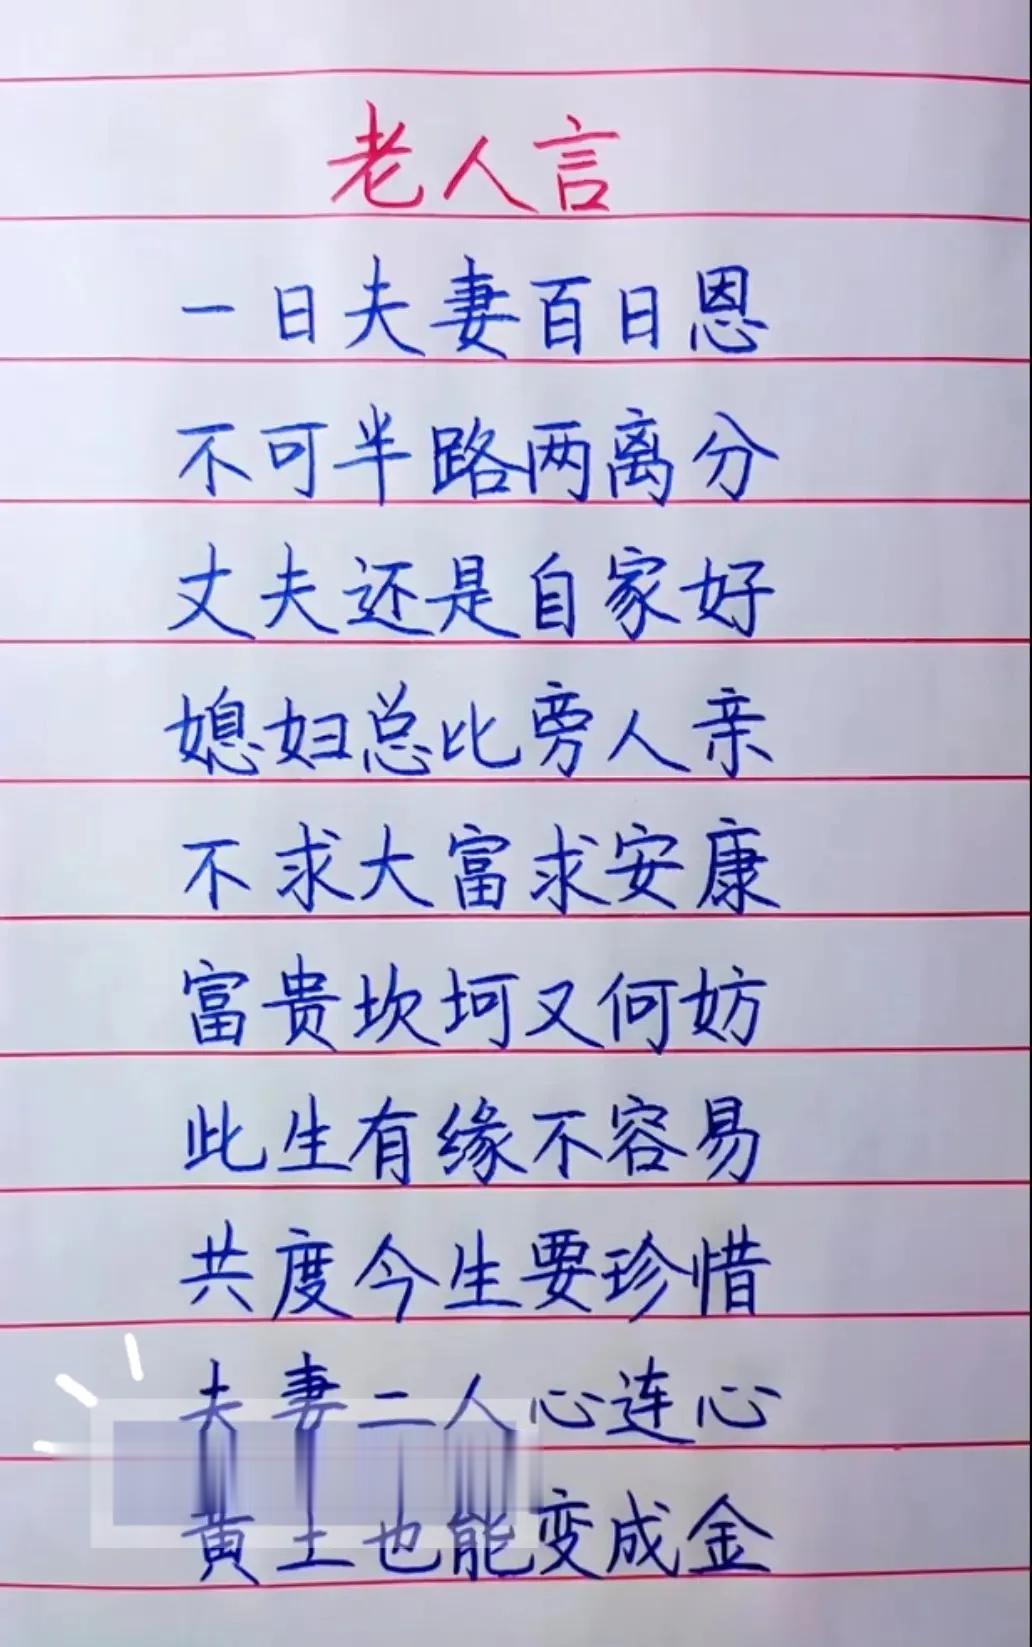 老人言
一日夫妻百日恩
不可半路两离分
丈夫还是自家好
媳妇总比旁人亲
不求大富求安康
富贵坎坷又何妨
此生有缘不容易
共度今生要珍惜
夫妻二人心连心
黄土也能变成金